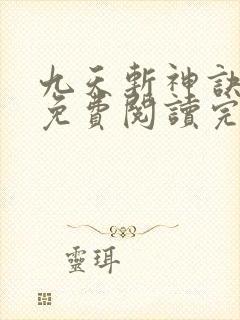 九天斬神訣
免費閱讀完
靈珥